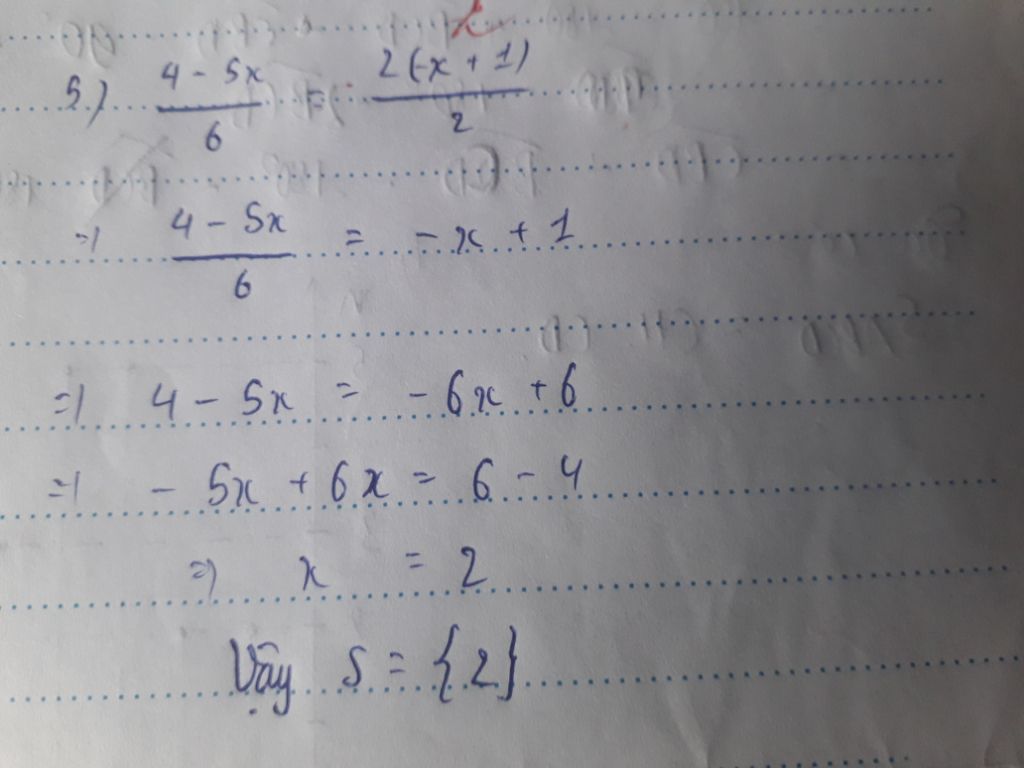 5.) (4 - 5x)/6 = 2(-x + 1)/2
=> (4 - 5x)/6 = -x + 1
=> 4 - 5x = -6x + 6
=> -5x + 6x = 6 - 4
=> x = 2
Vậy S = {2}